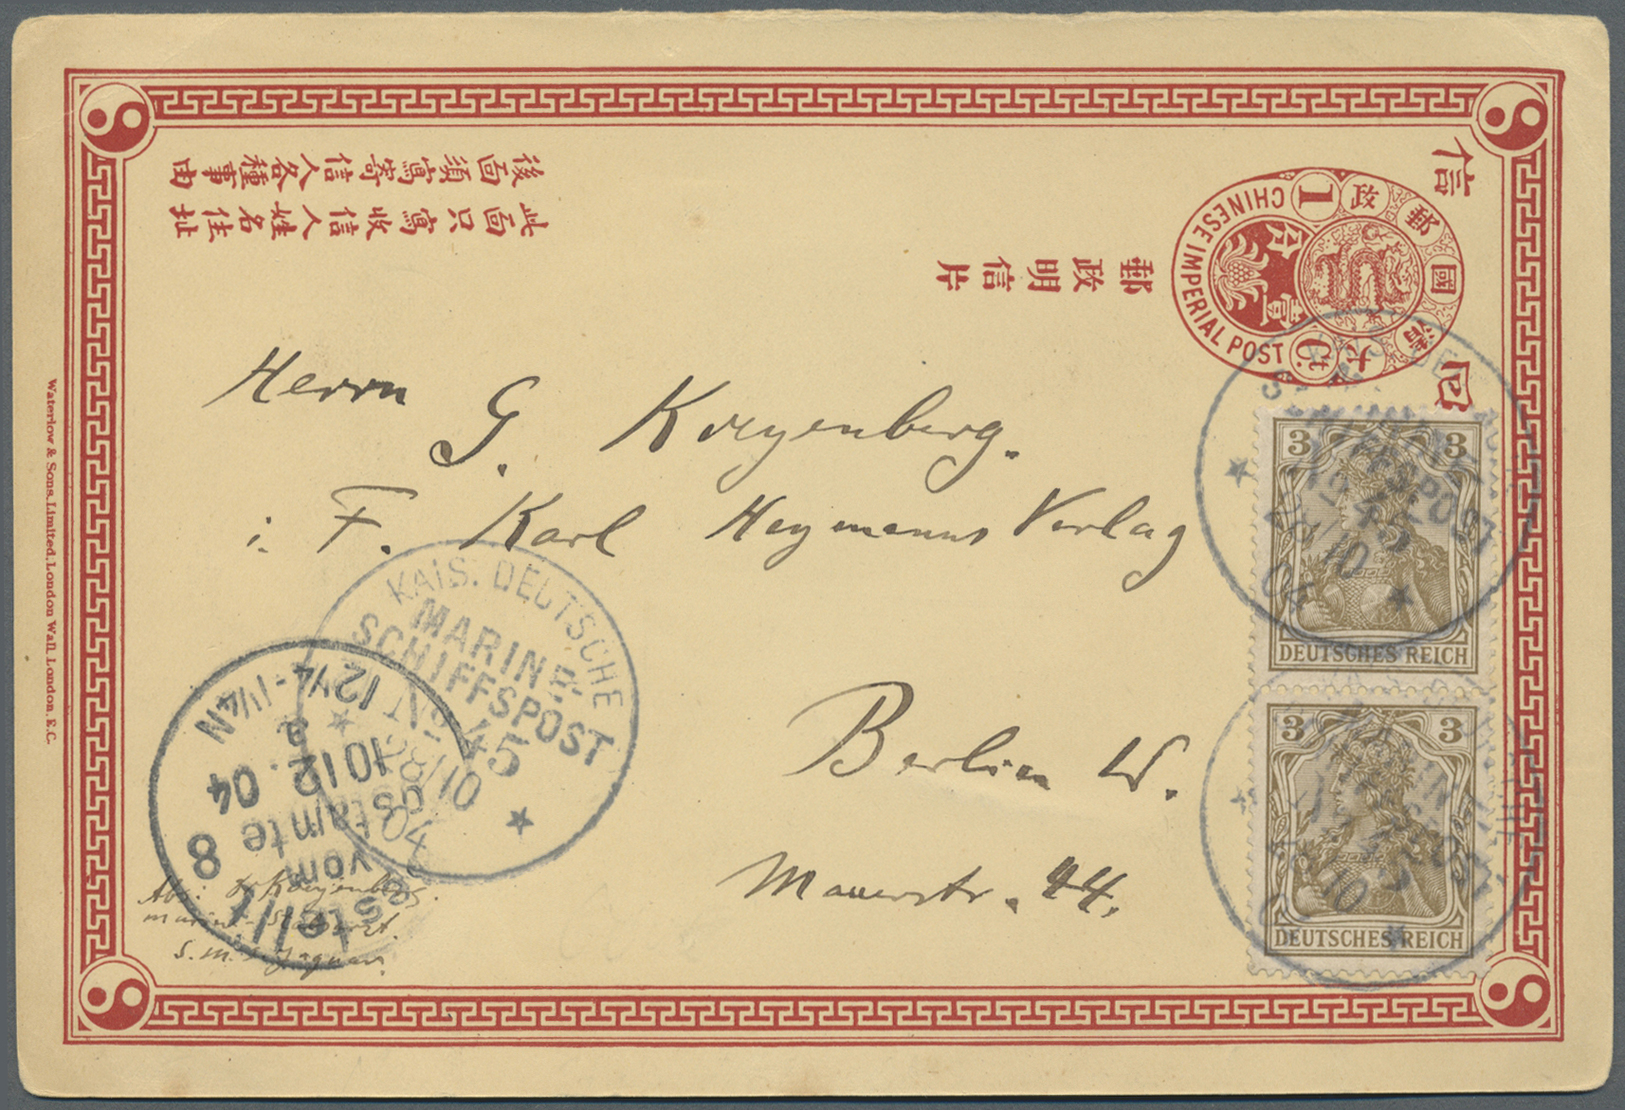 後面須寫寄信人各種事由
此面只寫收信人姓名住址
郵政明信片
信
大清國郵政
CHINESE IMPERIAL POST
1
Ct.
壹分
Herrn G. Krezenberg.
i. F. Karl Heymanns Verlag
Berlin W.
Mauerstr. 44.
3 3
DEUTSCHES REICH
3 3
DEUTSCHES REICH
KAIS. DEUTSCHE
MARINE-
SCHIFFSPOST
No 45
28/10
04
12¼-1¼N
10 12. 04
vom
8
Abs:
S.M.S. Jaguar.
Waterlow & Sons, Limited, London Wall, London, E.C.